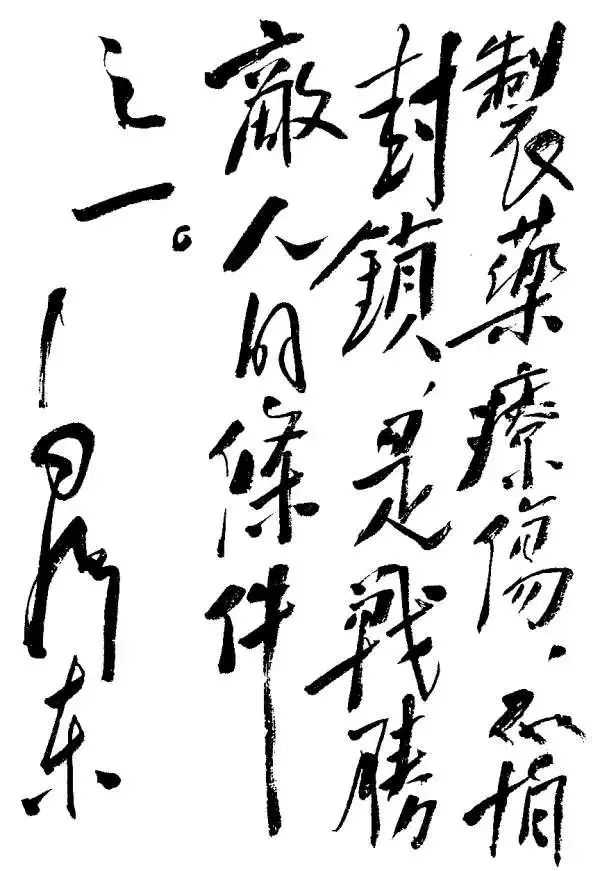 製藥療傷，不惧
封鎖，是戰勝
敵人的條件
之一。
—— 东